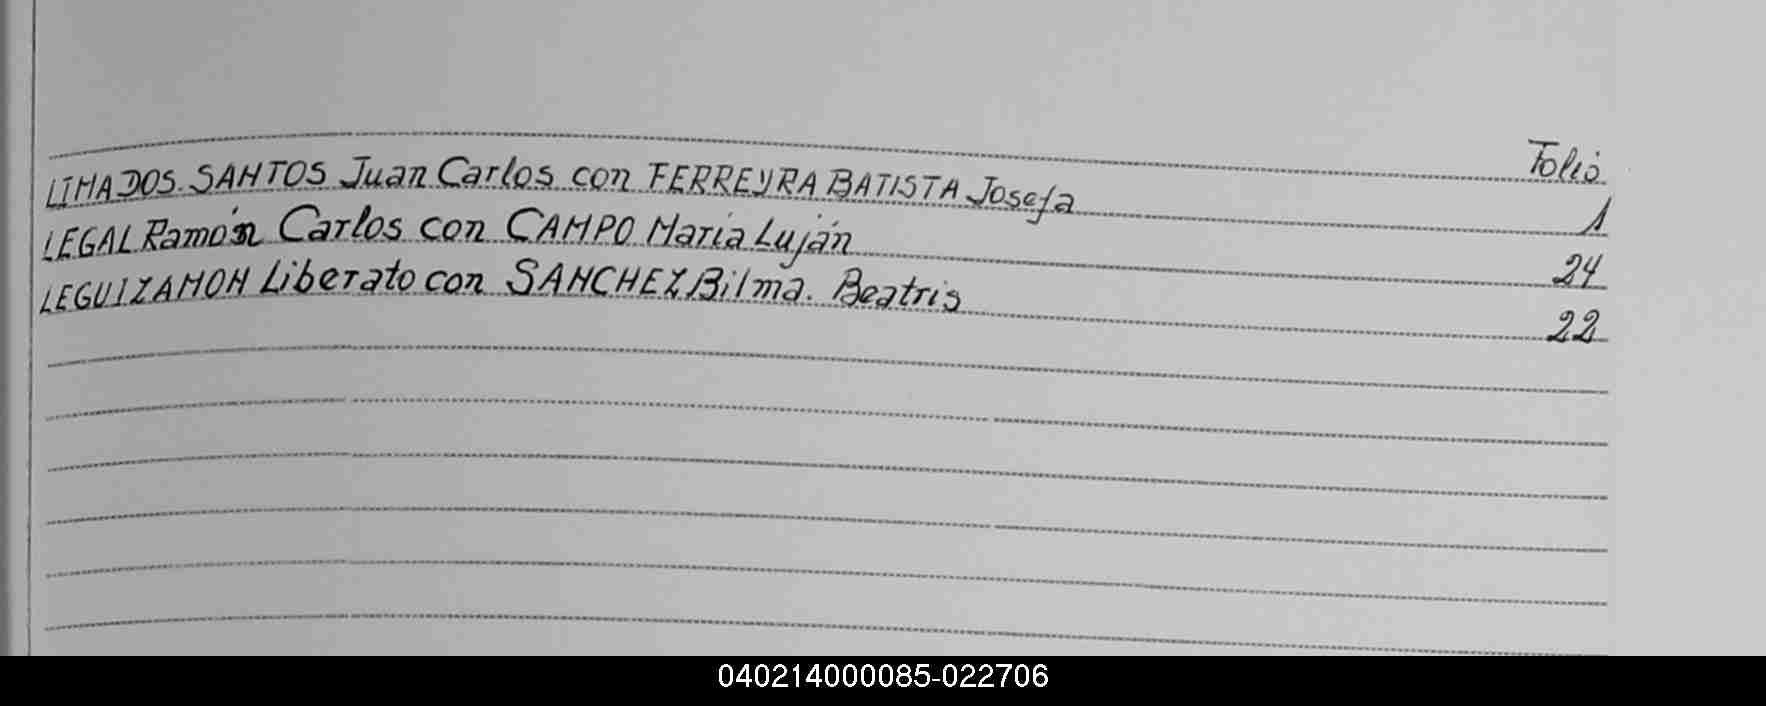 Folio
LIMA DOS SANTOS Juan Carlos con FERREYRA BATISTA Josefa 1
LEGAL Ramón Carlos con CAMPO María Luján 24
LEGUIZAMON Liberato con SANCHEZ Bilma. Beatris 22
040214000085-022706